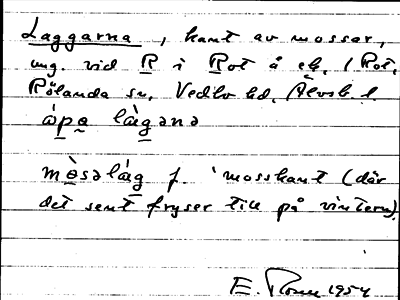 Laggarna, kant av mossar,
ung. vid R i Rot å ek. (Rot,
Rölanda sn, Vedbo hd, Älvsb. l.
ápa làgənə
mòsəlág f. 'mosskant (där
det sent fryser till på vintern).
E. 1954